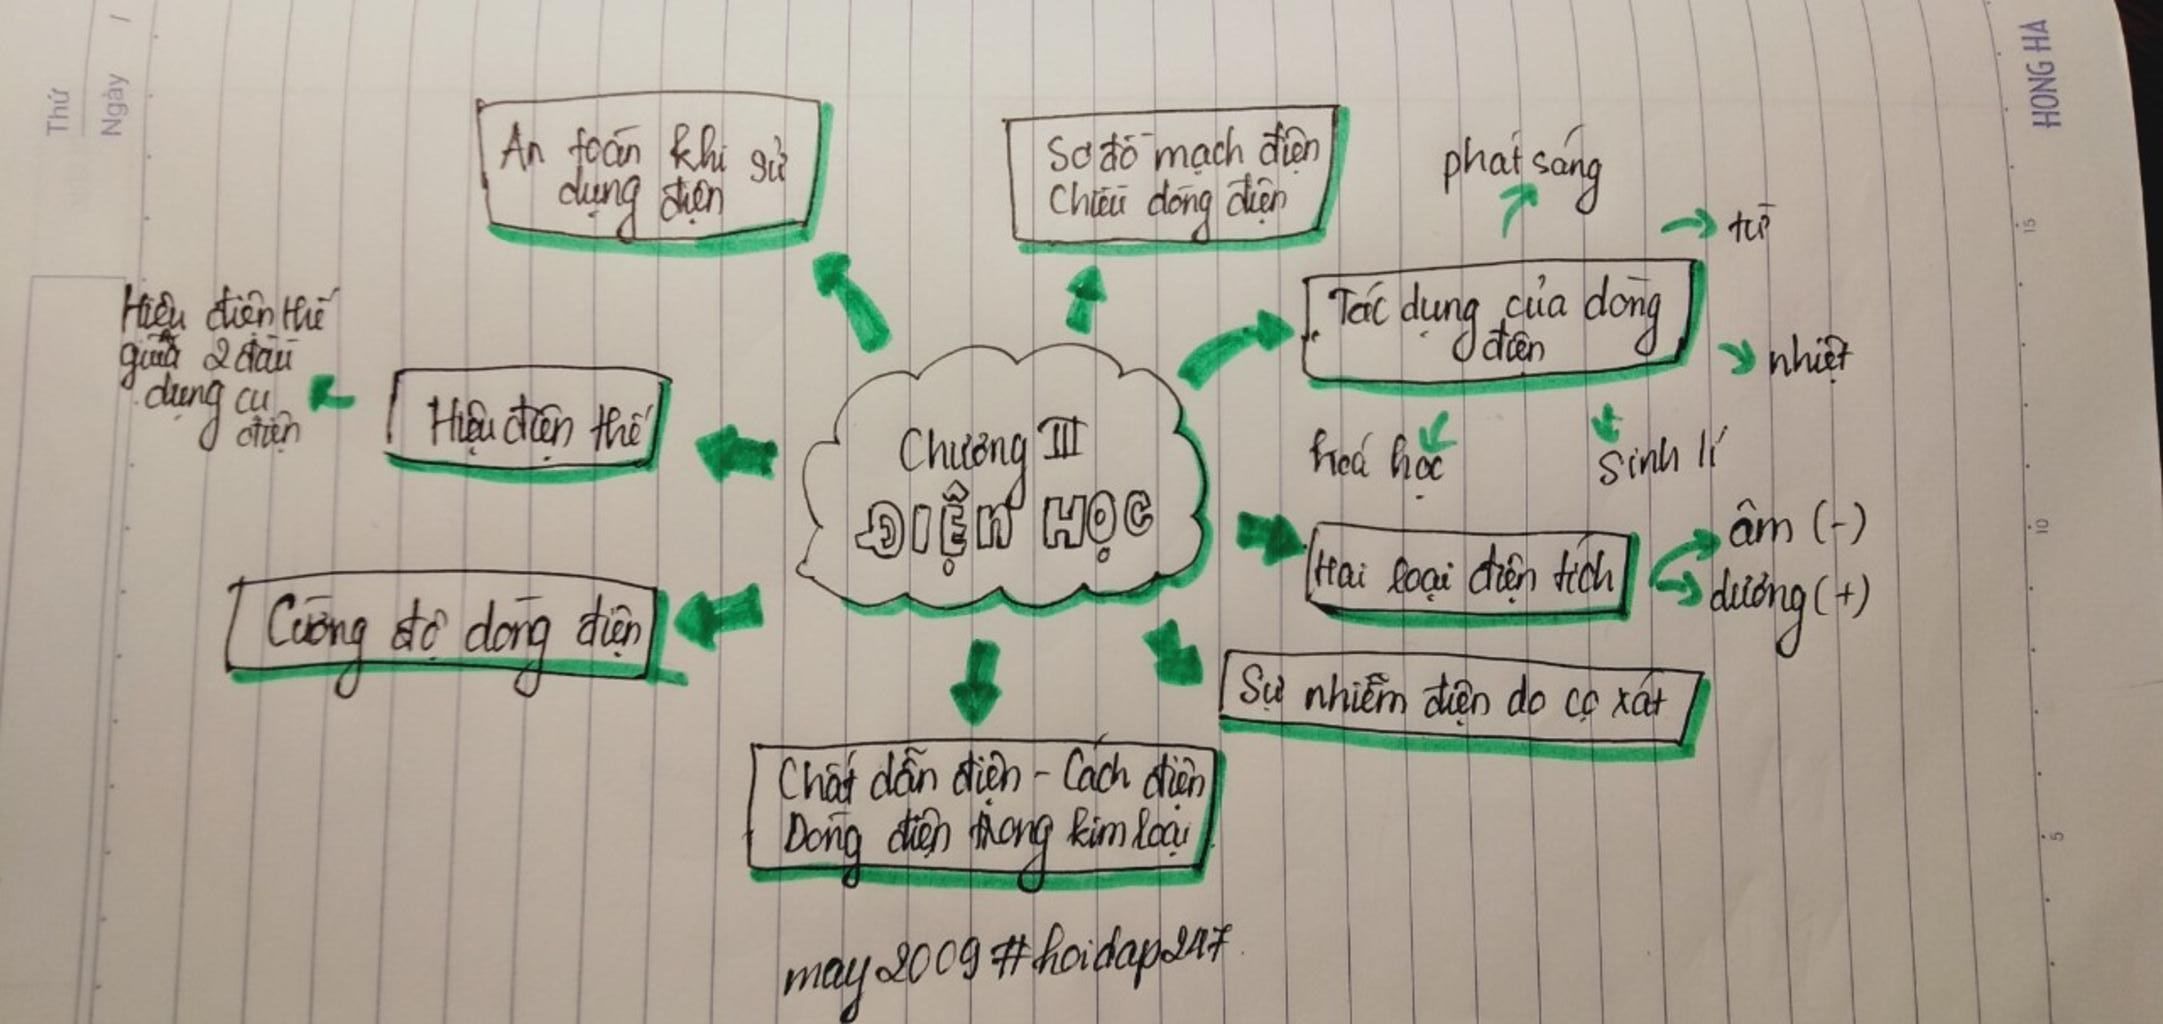 Thứ
Ngày /
HONG HA
An toàn khi sử
dụng điện
Sơ đồ mạch điện
Chiều dòng điện
phát sáng
từ
Tác dụng của dòng
điện
nhiệt
hoá học
sinh lí
Hiệu điện thế
giữa 2 đầu
dụng cụ
điện
Hiệu điện thế
Chương III
ĐIỆN HỌC
Hai loại điện tích
âm (-)
dương (+)
Cường độ dòng điện
Sự nhiễm điện do cọ xát
Chất dẫn điện - Cách điện
Dòng điện trong kim loại
may2009#hoidap247
15
10
5